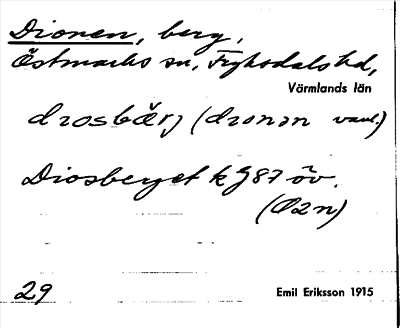 Dionen, berg,
Östmarks sn, Fryksdals hd,
Värmlands län
drosbärj (dronən vanl.)
Diosberget k J87 öv.
(Ø2n)
29
Emil Eriksson 1915